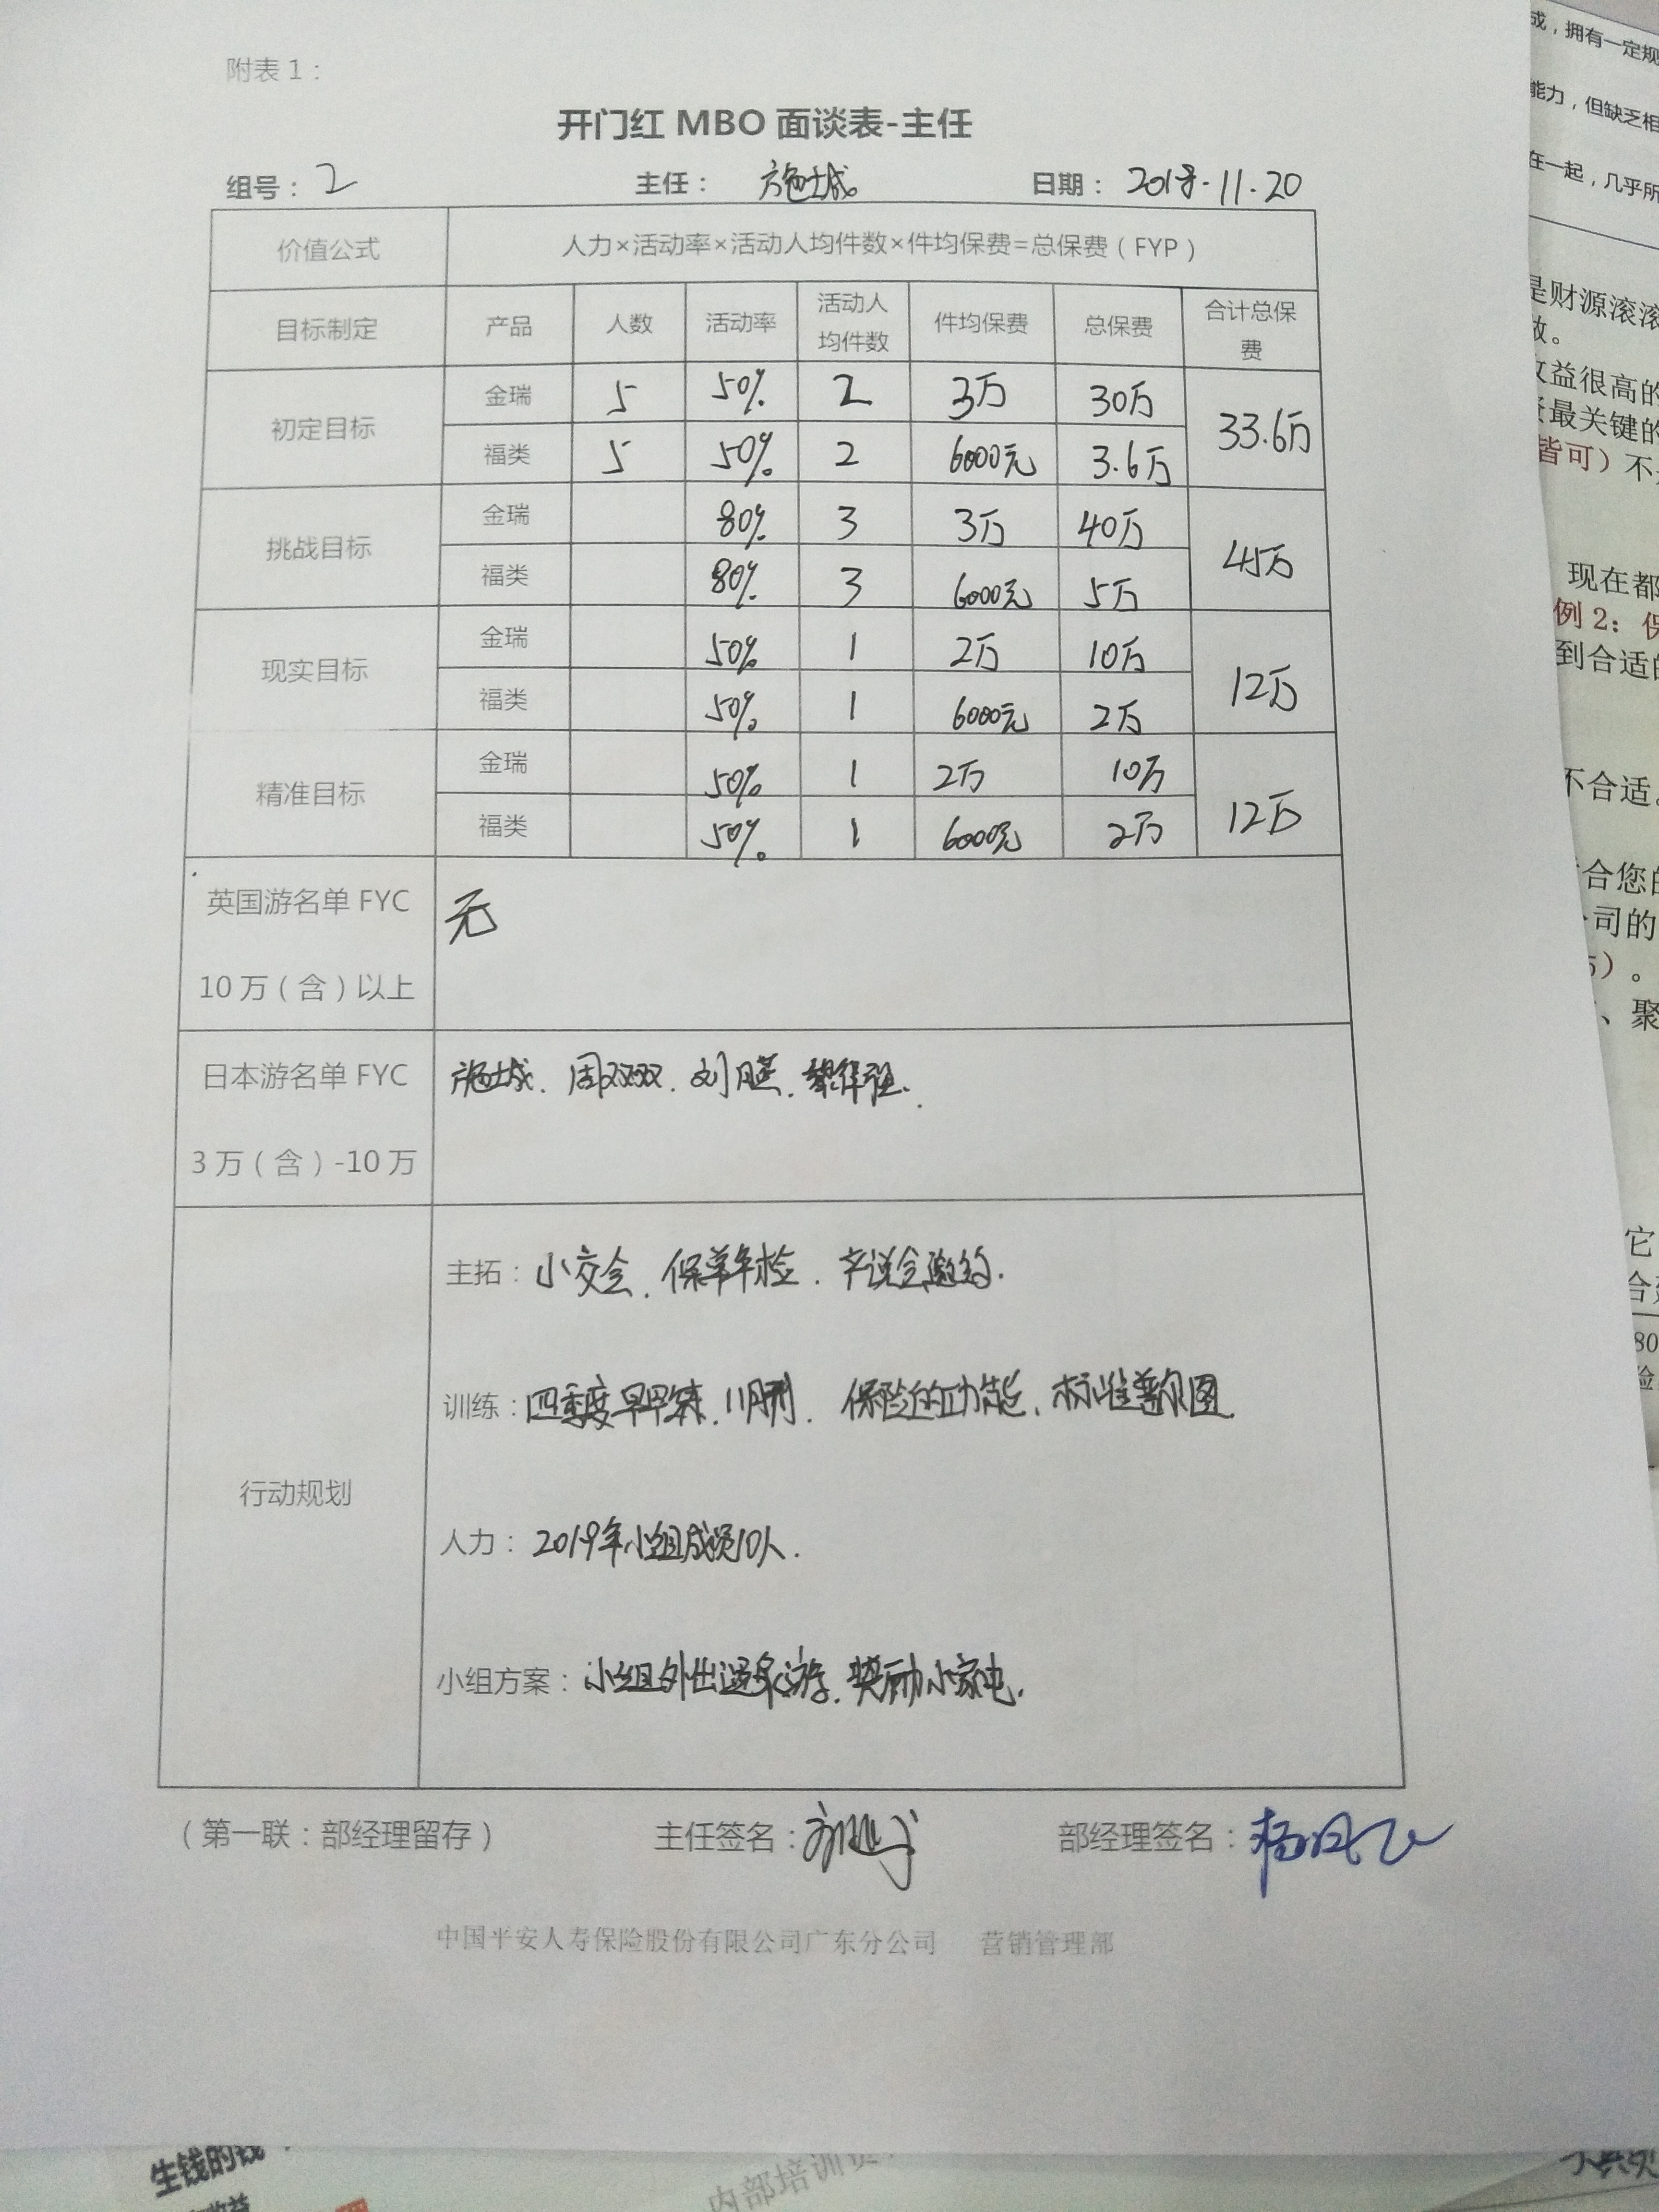 附表1：
开门红 MBO 面谈表-主任
组号：2 主任：施城 日期：2018.11.20
价值公式 人力×活动率×活动人均件数×件均保费=总保费（FYP）
目标制定 产品 人数 活动率 活动人均件数 件均保费 总保费 合计总保费
初定目标 金瑞 5 50% 2 3万 30万 33.6万
福类 5 50% 2 6000元 3.6万
挑战目标 金瑞 80% 3 3万 40万 45万
福类 80% 3 6000元 5万
现实目标 金瑞 50% 1 2万 10万 12万
福类 50% 1 6000元 2万
精准目标 金瑞 50% 1 2万 10万 12万
福类 50% 1 6000元 2万
英国游名单 FYC 无
10万（含）以上
日本游名单 FYC 施城、周双双、刘
3万（含）-10万
行动规划
主拓：小交会、保单年检、产说会邀约.
训练：四季度早早 、11月 、保险的功能、标准普尔图.
人力：2019年小组成员10人.
小组方案：小组外出温泉游、奖励小家电.
（第一联：部经理留存） 主任签名： 部经理签名：
中国平安人寿保险股份有限公司广东分公司 营销管理部
成，拥有一定规
能力，但缺乏相
在一起，几乎所
是财源滚滚
收益很高的
最关键的
皆可）不
现在都
例2：保
到合适的
不合适
合您的
司的
5）。
、聚
它
80
险
生钱的钱
收益
内部培训资